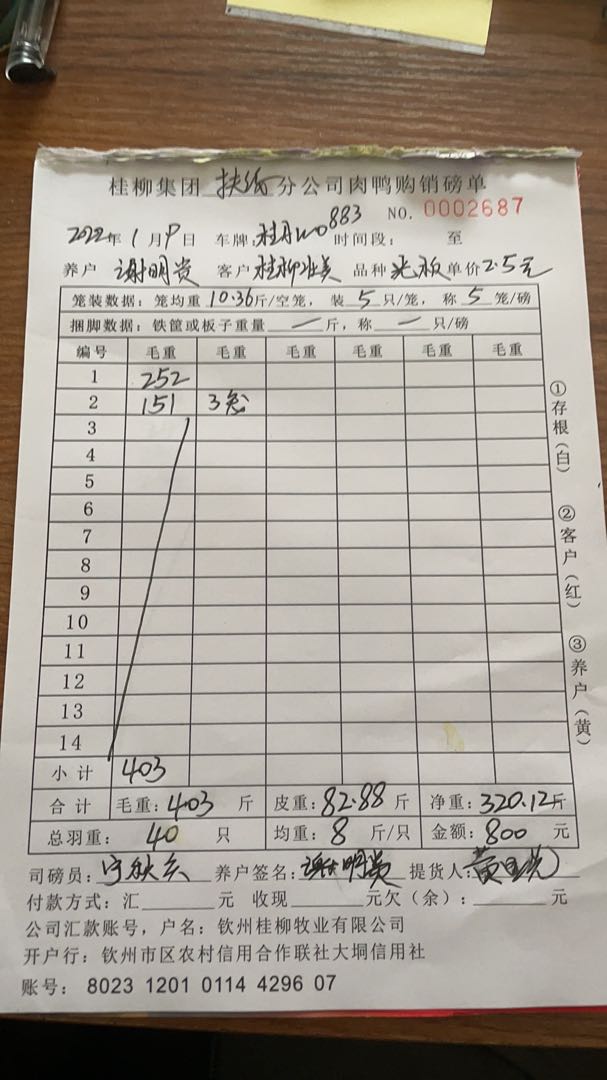 桂柳集团 扶绥 分公司肉鸭购销磅单
NO. 0002687
2022年 1月9日 车牌: 883 时间段: 至
养户 谢明贵 客户 桂柳 品种 单价2.5元
笼装数据: 笼均重 10.36斤/空笼, 装 5 只/笼, 称 5 笼/磅
捆脚数据: 铁筐或板子重量 — 斤, 称 — 只/磅
编号 毛重 毛重 毛重 毛重 毛重 毛重
1 252
2 151 3笼
3
4
5
6
7
8
9
10
11
12
13
14
小计 403
合计 毛重: 403 斤 皮重: 82.88 斤 净重: 320.12斤
总羽重: 40 只 均重: 8 斤/只 金额: 800 元
司磅员: 养户签名: 谢明贵 提货人: 黄
付款方式: 汇 元 收现 元欠(余): 元
公司汇款账号, 户名: 钦州桂柳牧业有限公司
开户行: 钦州市区农村信用合作联社大垌信用社
账号: 8023 1201 0114 4296 07
①存根(白)
②客户(红)
③养户(黄)